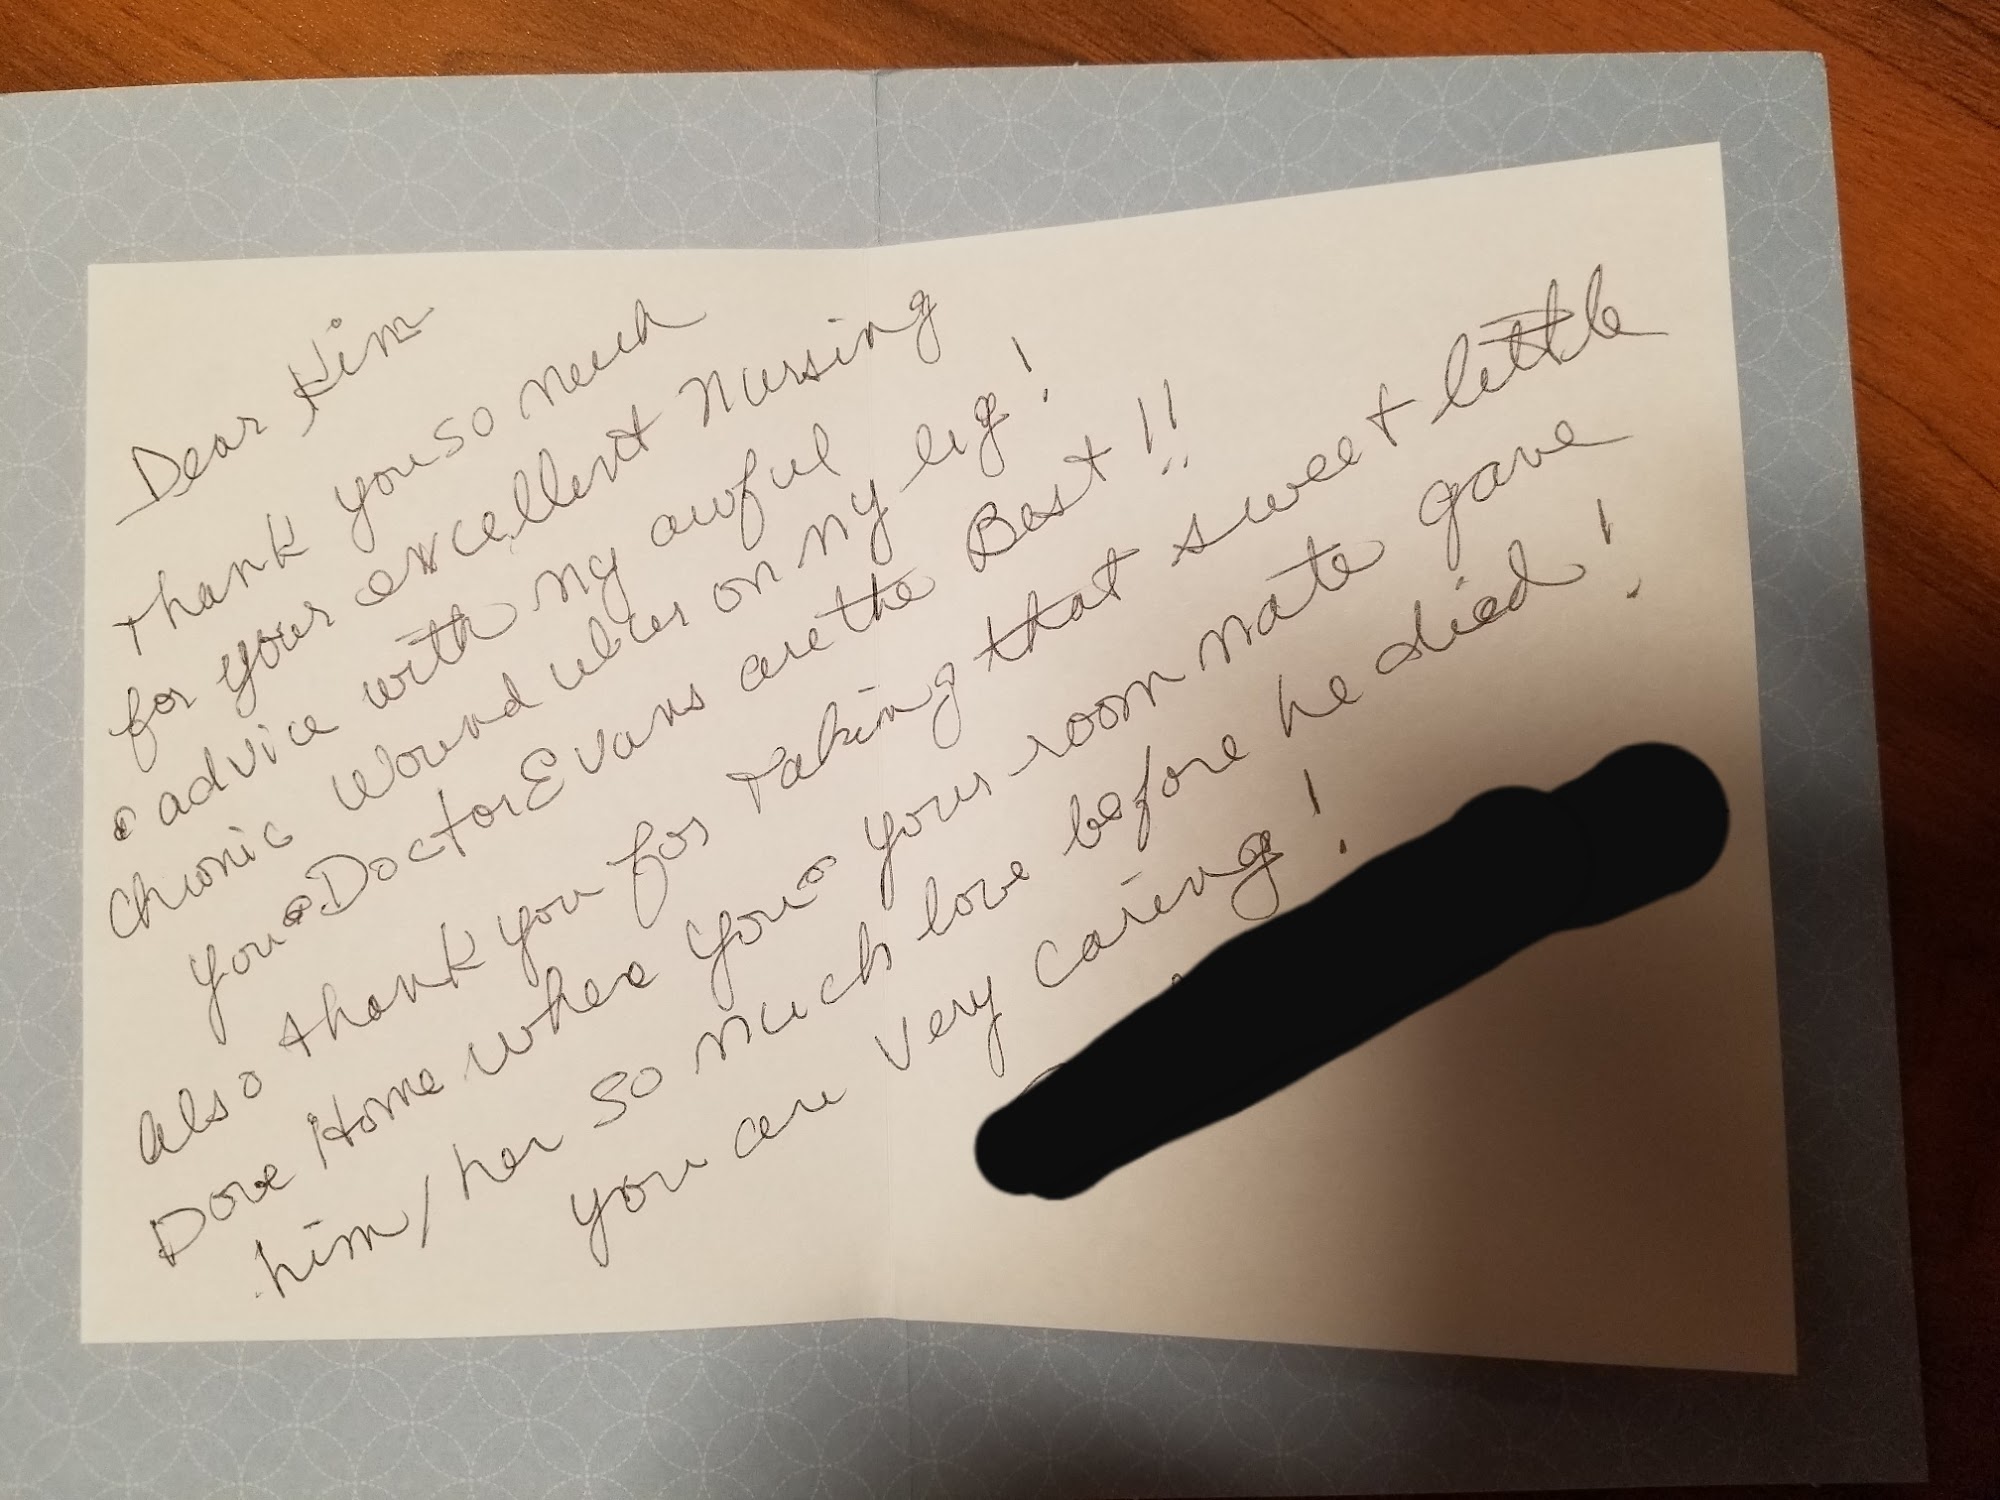 Dear Kim
Thank you so much
for your excellent Nursing
& advice with my awful
Chronic Wound ulcer on my leg!
You & Doctor Evans are the Best!!
Also thank you for taking that sweet little
Dove Home where you & your room mate gave
him/her so much love before he died!
you are very caring!